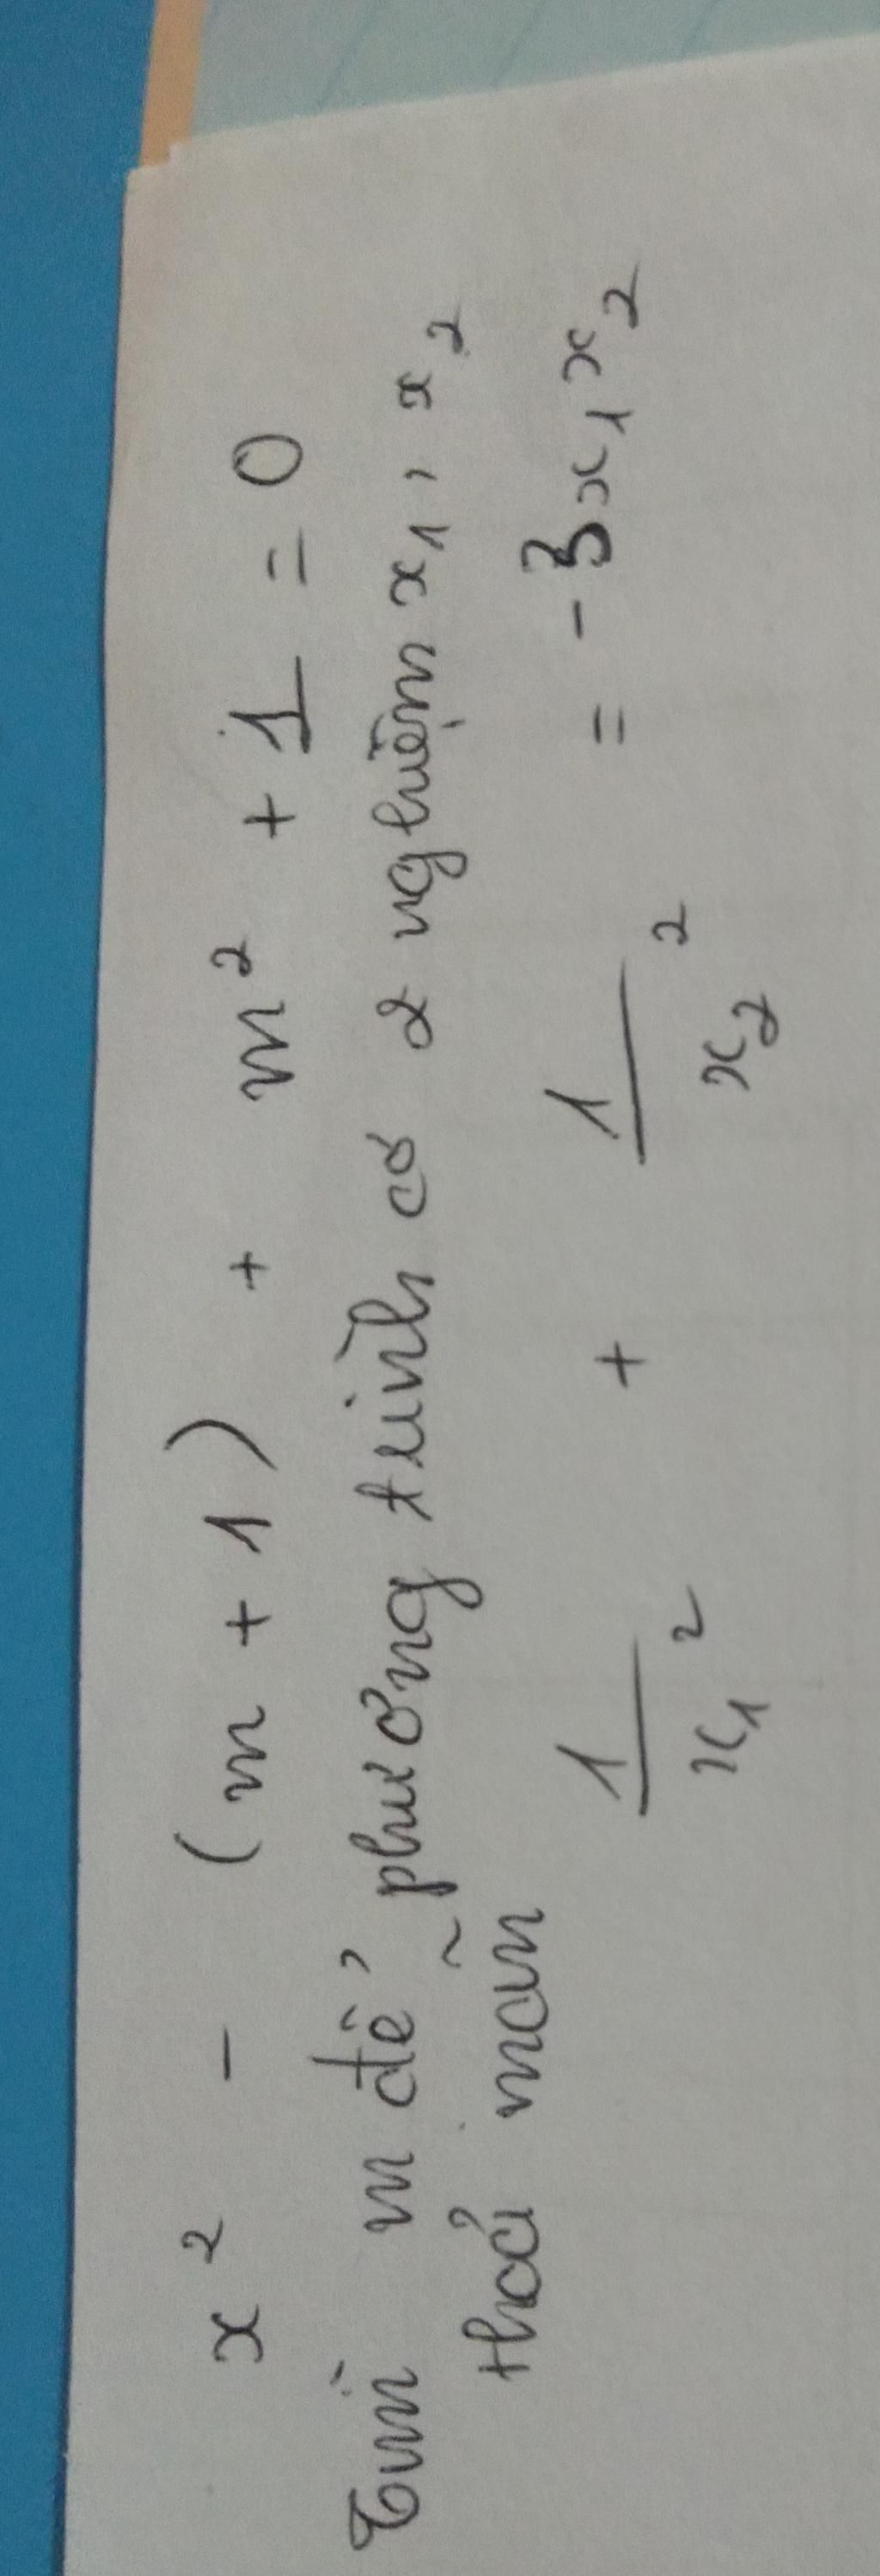 x² - (m + 1) + m² + 1 = 0
Tìm m để phương trình có 2 nghiệm x₁, x₂
thoả mãn 1/x₁² + 1/x₂² = -3x₁x₂